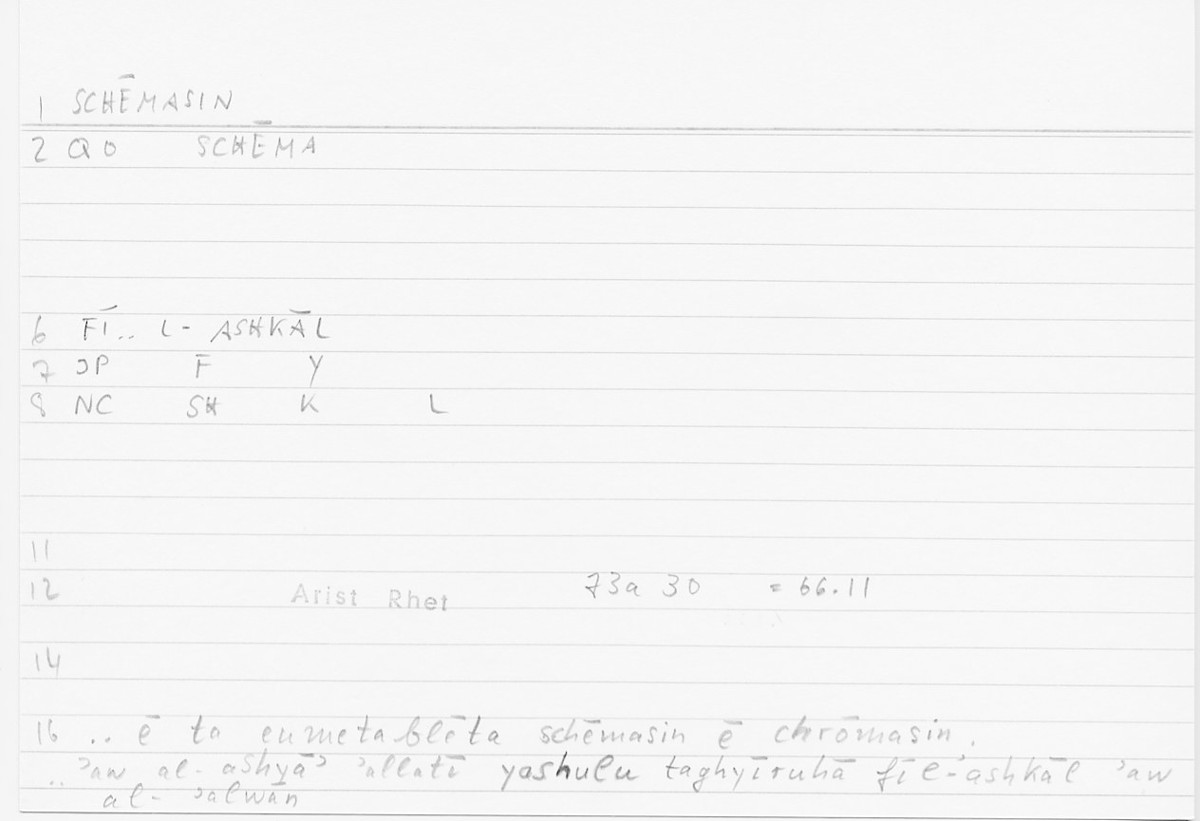 1 SCHĒMASIN
2 QO SCHĒMA
6 FĪ.. L- ASHKĀL
7 JP F Y
8 NC SH K L
11
12 Arist Rhet 73a 30 = 66.11
14
16 .. ē ta eumetablēta schēmasin ē chrōmasin.
.. ʾaw al-ashyāʾ ʾallatī yashulu taghyīruhā fīl-ʾashkāl ʾaw
al-ʾalwān